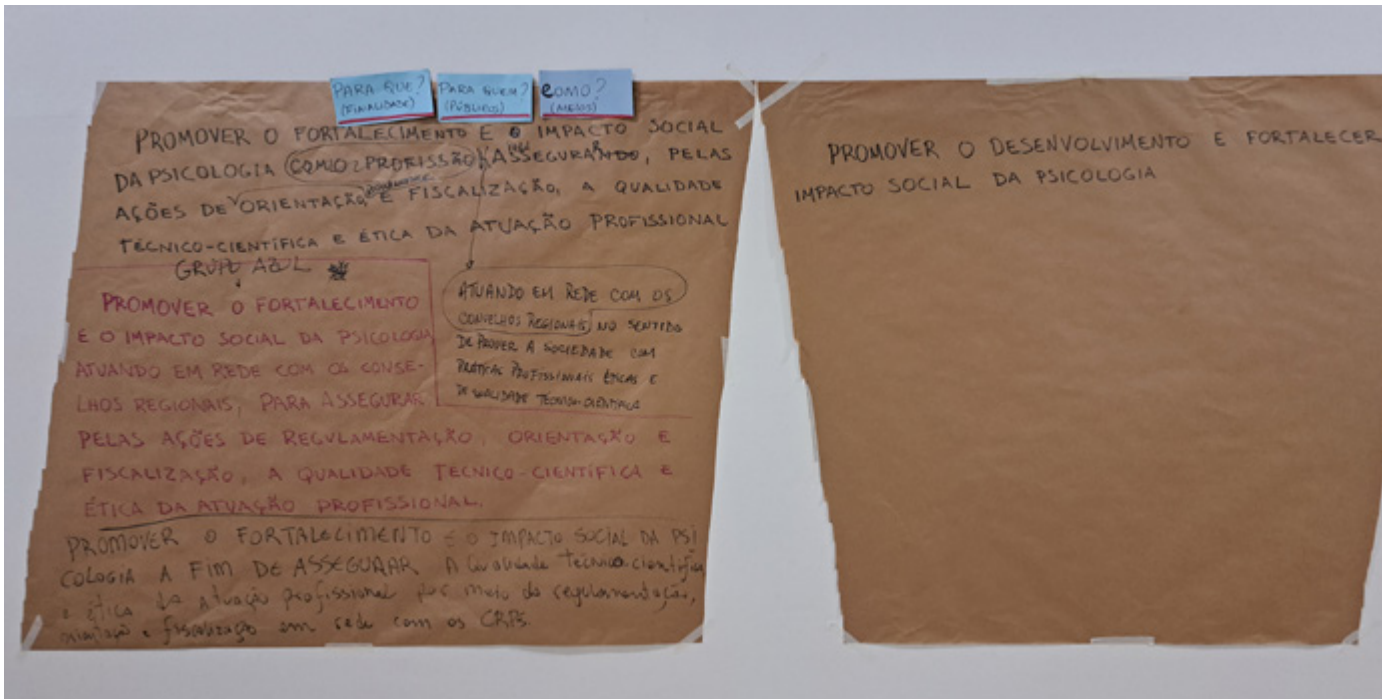 PARA QUE?
(FINALIDADE)
PARA QUEM?
(PÚBLICOS)
COMO?
(MEIOS)
PROMOVER O FORTALECIMENTO E O IMPACTO SOCIAL
DA PSICOLOGIA COMO PROFISSÃO ASSEGURANDO, PELAS
AÇÕES DE ORIENTAÇÃO E FISCALIZAÇÃO, A QUALIDADE
TÉCNICO-CIENTÍFICA E ÉTICA DA ATUAÇÃO PROFISSIONAL
GRUPO AZUL
PROMOVER O FORTALECIMENTO
E O IMPACTO SOCIAL DA PSICOLOGIA
ATUANDO EM REDE COM OS CONSE-
LHOS REGIONAIS, PARA ASSEGURAR
PELAS AÇÕES DE REGULAMENTAÇÃO, ORIENTAÇÃO E
FISCALIZAÇÃO, A QUALIDADE TÉCNICO-CIENTÍFICA E
ÉTICA DA ATUAÇÃO PROFISSIONAL.
ATUANDO EM REDE COM OS
CONSELHOS REGIONAIS, NO SENTIDO
DE PROVER A SOCIEDADE COM
PRÁTICAS PROFISSIONAIS ÉTICAS E
DE QUALIDADE TÉCNICO-CIENTÍFICA
PROMOVER O FORTALECIMENTO E O IMPACTO SOCIAL DA PSI
COLOGIA A FIM DE ASSEGURAR A Qualidade Técnico-científica
e ética da atuação profissional por meio da regulamentação,
orientação e fiscalização em rede com os CRPs.
PROMOVER O DESENVOLVIMENTO E FORTALECER
IMPACTO SOCIAL DA PSICOLOGIA